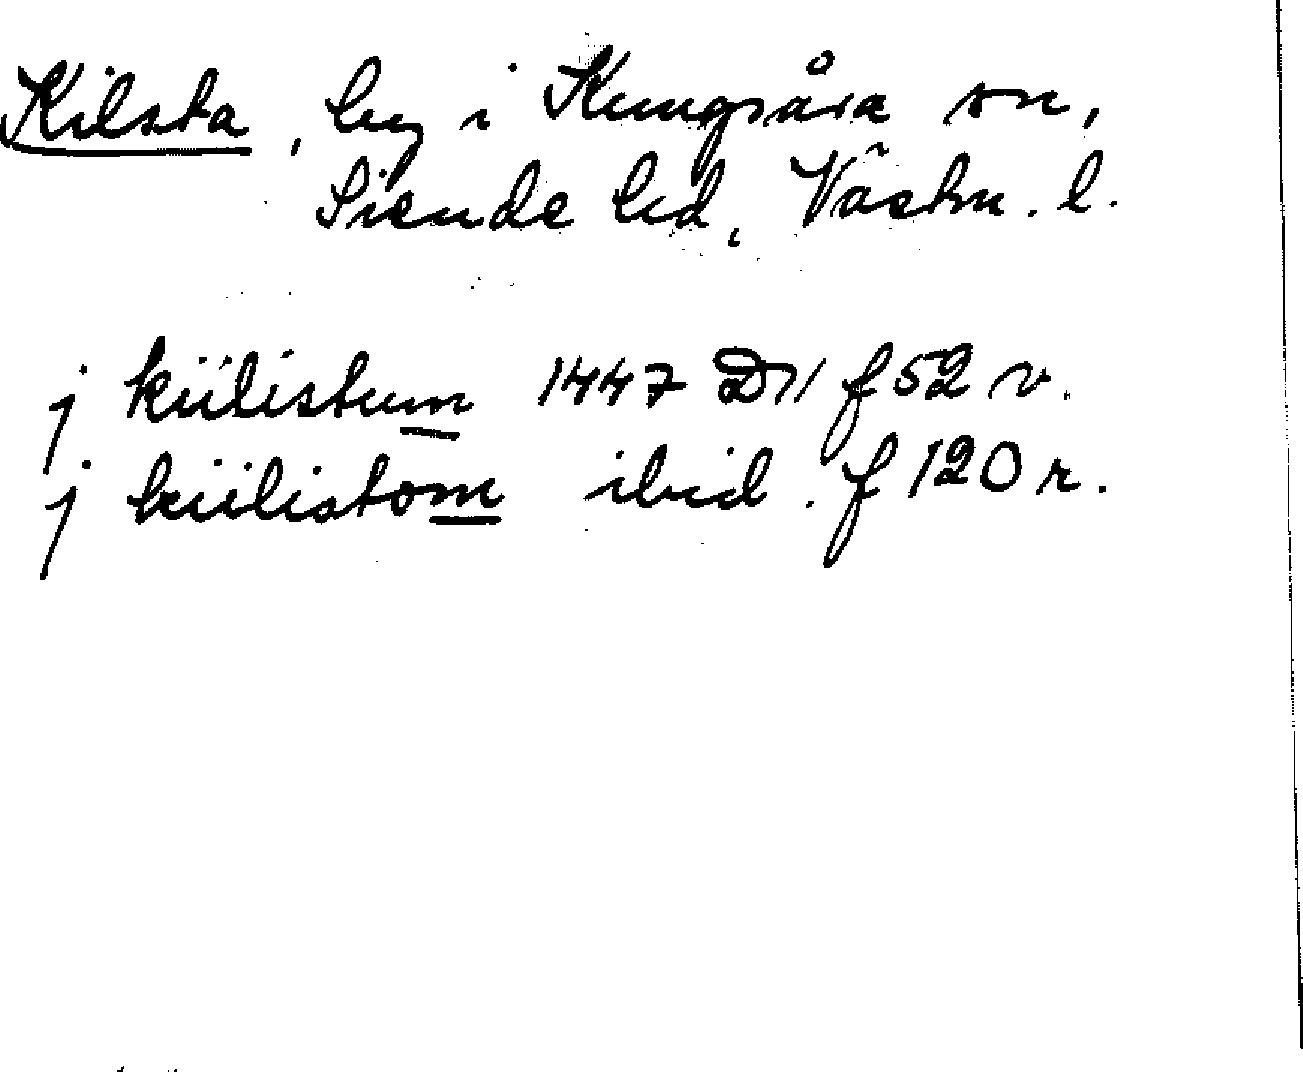 Kilsta, by i Kungsåra sn,
Siende hd, Västm. l.
j kiilistum 1447 D11 f 52 v.
j kiilistom ibid. f 120 r.